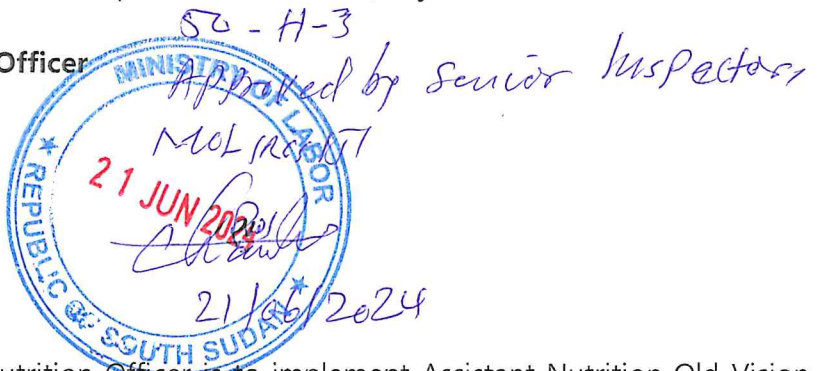 50-H-3
Officer
Approved by Senior Inspector,
MINISTRY OF LABOR
REPUBLIC OF SOUTH SUDAN
21 JUN 2024
21/06/2024
utrition Officer is to implement Assistant Nutrition Old Vision